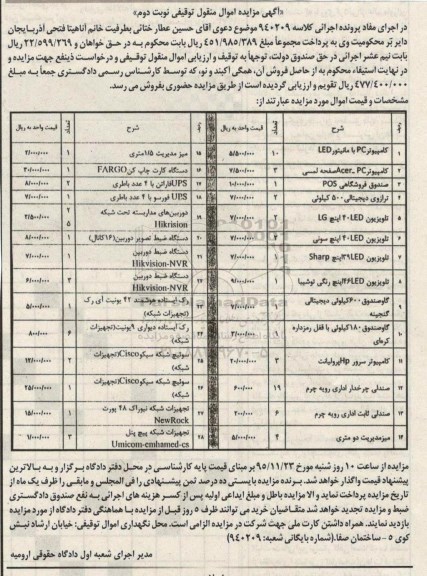 «آگهی مزایده اموال منقول توقیفی نوبت دوم»
در اجرای مفاد پرونده اجرایی کلاسه ۹۴۰۲۰۹ موضوع دعوی آقای حسین عطار ختائی بطرفیت خانم آناهیتا فتحی آذربایجان
دایر بر محکومیت وی به پرداخت مجموعاً مبلغ ۴۵۱/۹۸۵/۳۸۹ ریال بابت محکوم به در حق خواهان و ۲۲/۵۹۹/۲۶۹ ریال
بابت نیم عشر اجرایی در حق صندوق دولت، توجهاً به توقیف و ارزیابی اموال منقول توقیفی و درخواست ذینفع جهت مزایده و
در نهایت استیفاء محکوم به از حاصل فروش آن، همگی آکبند و نو، که توسط کارشناس رسمی دادگستری جمعاً به مبلغ
۴۷۷/۴۰۰/۰۰۰ ریال تقویم و ارزیابی گردیده است از طریق مزایده حضوری بفروش می رسد.
مشخصات و قیمت اموال مورد مزایده عبارتند از:
ردیف شرح تعداد قیمت واحد به ریال
۱ کامپیوتر PC با مانیتور LED ۱۰ ۵/۵۰۰/۰۰۰
۲ کامپیوتر PC _ Acer صفحه لمسی ۳ ۷/۵۰۰/۰۰۰
۳ صندوق فروشگاهی POS ۱ ۱۰/۰۰۰/۰۰۰
۴ ترازوی دیجیتالی ۵۰۰ کیلوئی ۲ ۷/۰۰۰/۰۰۰
۵ تلویزیون LED ۴۰ اینچ LG ۲ ۷/۰۰۰/۰۰۰
۶ تلویزیون LED ۴۰ اینچ سونی ۴ ۷/۰۰۰/۰۰۰
۷ تلویزیون LED ۳۹ اینچ Sharp ۱ ۷/۰۰۰/۰۰۰
۸ تلویزیون LED ۴۶ اینچ رنگی توشیبا ۱ ۹/۰۰۰/۰۰۰
۹ گاوصندوق ۶۰۰ کیلوئی دیجیتالی گنجینه ۱ ۷/۰۰۰/۰۰۰
۱۰ گاوصندوق ۱۸۰ کیلوئی با قفل رمزداره کره‌ای ۱ ۳/۰۰۰/۰۰۰
۱۱ کامپیوتر سرور Hp پرولیانت ۳ ۲۰/۰۰۰/۰۰۰
۱۲ صندلی چرخدار اداری رویه چرم ۱۹ ۶۰۰/۰۰۰
۱۳ صندلی ثابت اداری رویه چرم ۶ ۲۰۰/۰۰۰
۱۴ میز مدیریت دو متری ۴ ۵/۰۰۰/۰۰۰
ردیف شرح تعداد قیمت واحد به ریال
۱۵ میز مدیریت ۱/۵ متری ۱ ۲/۰۰۰/۰۰۰
۱۶ دستگاه کارت چاپ کن FARGO ۱ ۲۰/۰۰۰/۰۰۰
۱۷ UPS فاراتل با ۴ عدد باطری ۲ ۸/۰۰۰/۰۰۰
۱۸ UPS فورسو با ۴ عدد باطری ۱ ۷/۰۰۰/۰۰۰
۱۹ دوربین‌های مداربسته تحت شبکه Hikrision ۲ ۵ ۲/۵۰۰/۰۰۰
۲۰ دستگاه ضبط تصویر دوربین (۱۶ کانال) ۱ ۸/۰۰۰/۰۰۰
۲۱ دستگاه ضبط دوربین Hikvision-NVR ۱ ۷/۰۰۰/۰۰۰
۲۲ دستگاه ضبط دوربین Hikvision-NVR ۳ ۶/۰۰۰/۰۰۰
۲۳ رک ایستاده هوشمند ۴۲ یونیت آی رک (تجهیزات شبکه) ۱ ۵/۰۰۰/۰۰۰
۲۴ رک ایستاده دیواری ۹ یونیت (تجهیزات شبکه) ۶ ۸۰۰/۰۰۰
۲۵ سوئیچ شبکه سیکو Cisco (تجهیزات شبکه) ۲ ۱۲/۰۰۰/۰۰۰
۲۶ سوئیچ شبکه سیکو Cisco (تجهیزات شبکه) ۱ ۲۵/۰۰۰/۰۰۰
۲۷ تجهیزات شبکه نیوراک ۴۸ پورت NewRock ۱ ۱۵/۰۰۰/۰۰۰
۲۸ تجهیزات شبکه پیچ پنل Umicom-emhamed-cs ۳ ۱/۰۰۰/۰۰۰
مزایده از ساعت ۱۰ روز شنبه مورخ ۹۵/۱۱/۲۳ بر مبنای قیمت پایه کارشناسی در محل دفتر دادگاه برگزار و به بالاترین
پیشنهاد قیمت واگذار خواهد شد. برنده مزایده بایستی ده درصد ثمن پیشنهادی را فی المجلس و مابقی را ظرف یک ماه از
تاریخ مزایده پرداخت نماید و الا مزایده باطل و مبلغ ابداعی اولیه پس از کسر هزینه های اجرائی به نفع صندوق دادگستری
ضبط و مزایده تجدید خواهد شد متقاضیان خرید می توانند ظرف ۵ روز قبل از مزایده با هماهنگی دفتر دادگاه از مورد مزایده
بازدید نمایند. همراه داشتن کارت ملی جهت شرکت در مزایده الزامی است. محل نگهداری اموال توقیفی: خیابان ارشاد نبش
کوی ۵ - ساختمان صفا. (شماره بایگانی شعبه: ۹۴۰۲۰۹)
مدیر اجرای شعبه اول دادگاه حقوقی ارومیه